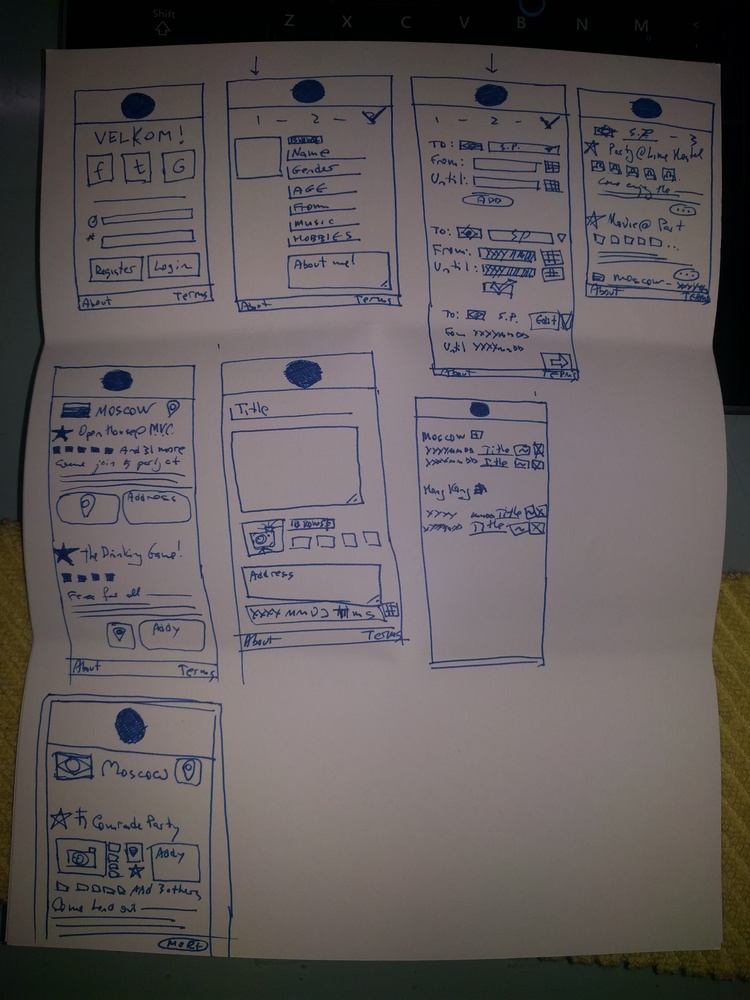 Shift
Z X C V B N M <
VELKOM!
f t G
Register Login
About Terms
1 - 2 -
Name
Gender
AGE
From
Music
HOBBIES
About me!
About Terms
1 - 2 -
To: S.P.
From:
Until:
ADD
To: SP
From:
Until:
To: S.P. Edit
From XXXX
Until XXXX
About Terms
S.P - 3
Party@Lime Hostel
Come enjoy the
Movie@ Part
...
moscow -
About Terms
MOSCOW
Open House@ MVC.
And 31 more
Come join to party at
Address
the Drinking Game!
Free for all
Addy
About Terms
Title
BROWSE
Address
XXXX MM DD
About Terms
Moscow
Title
Title
Hong Kong
XXXX Title
Title
Moscow
Comrade Party
Addy
And 3 others
Come hand out
MORE